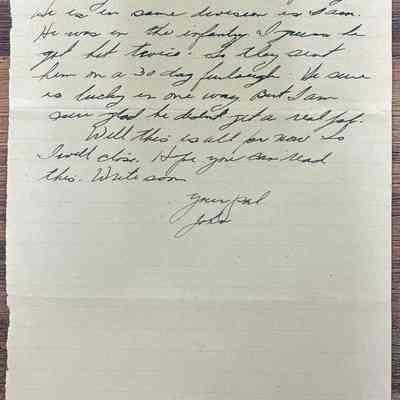 He is in same division as I am.
He was in the infantry I guess he
got hit twice. So they sent
him on a 30 day furlough. He sure
is lucky in one way. But I am
sure glad he didnt get a real
Well this is all for now so
I will close. Hope you can read
this. Write soon
Your pal
John